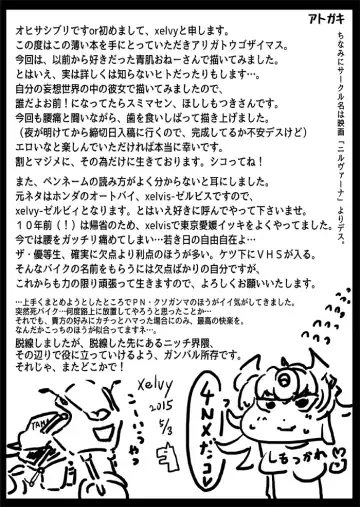 アトガキ
ちなみにサークル名は映画「ニルヴァーナ」よりデス。
オヒサシブリですor初めまして、xelvyと申します。
この度はこの薄い本を手にとっていただきアリガトウゴザイマス。
今回は、以前から好きだった青肌おねーさんで描いてみました。
とはいえ、実は詳しくは知らないヒトだったりもします…
自分の妄想世界の中の彼女で描いてみましたので、
誰だよお前！になってたらスミマセン、ほししもつきさんです。
今回も腰痛と闘いながら、歯を食いしばって描き上げました。
（夜が明けてから締切日入稿に行くので、完成してるか不安デスけど）
エロいなと楽しんでいただければ本当に幸いです。
割とマジメに、その為だけに生きております。シコってね！
また、ペンネームの読み方がよく分からないと耳にしました。
元ネタはホンダのオートバイ、xelvis-ゼルビスですので、
xelvy-ゼルビィとなります。とはいえ好きに呼んでやって下さいませ。
１０年前（！）は帰省のため、xelvisで東京愛媛イッキをよくやってました。
今では腰をガッチリ痛めてしまい…若き日の自由自在よ…
ザ・優等生、確実に欠点より利点のほうが多い。ケツ下にＶＨＳが入る。
そんなバイクの名前をもらうには欠点ばかりの自分ですが、
これからも力の限り頑張って生きますので、よろしくお願いいたします。
…上手くまとめようとしたところでＰＮ・クソガンマのほうがイイ気がしてきました。
突然死バイク…何度路上に放置してやろうと思ったことか…
それでも、貴方の好みにカチっとハマった場合にのみ、最高の快楽を。
なんだかこっちのほうが似合ってますネ…
脱線しましたが、脱線した先にあるニッチ界隈、
その辺りで役に立っていけるよう、ガンバル所存です。
それじゃ、またどこかで！
xelvy
2015
5/3
こーいうやつ
４NXだコレ
しもつかれ